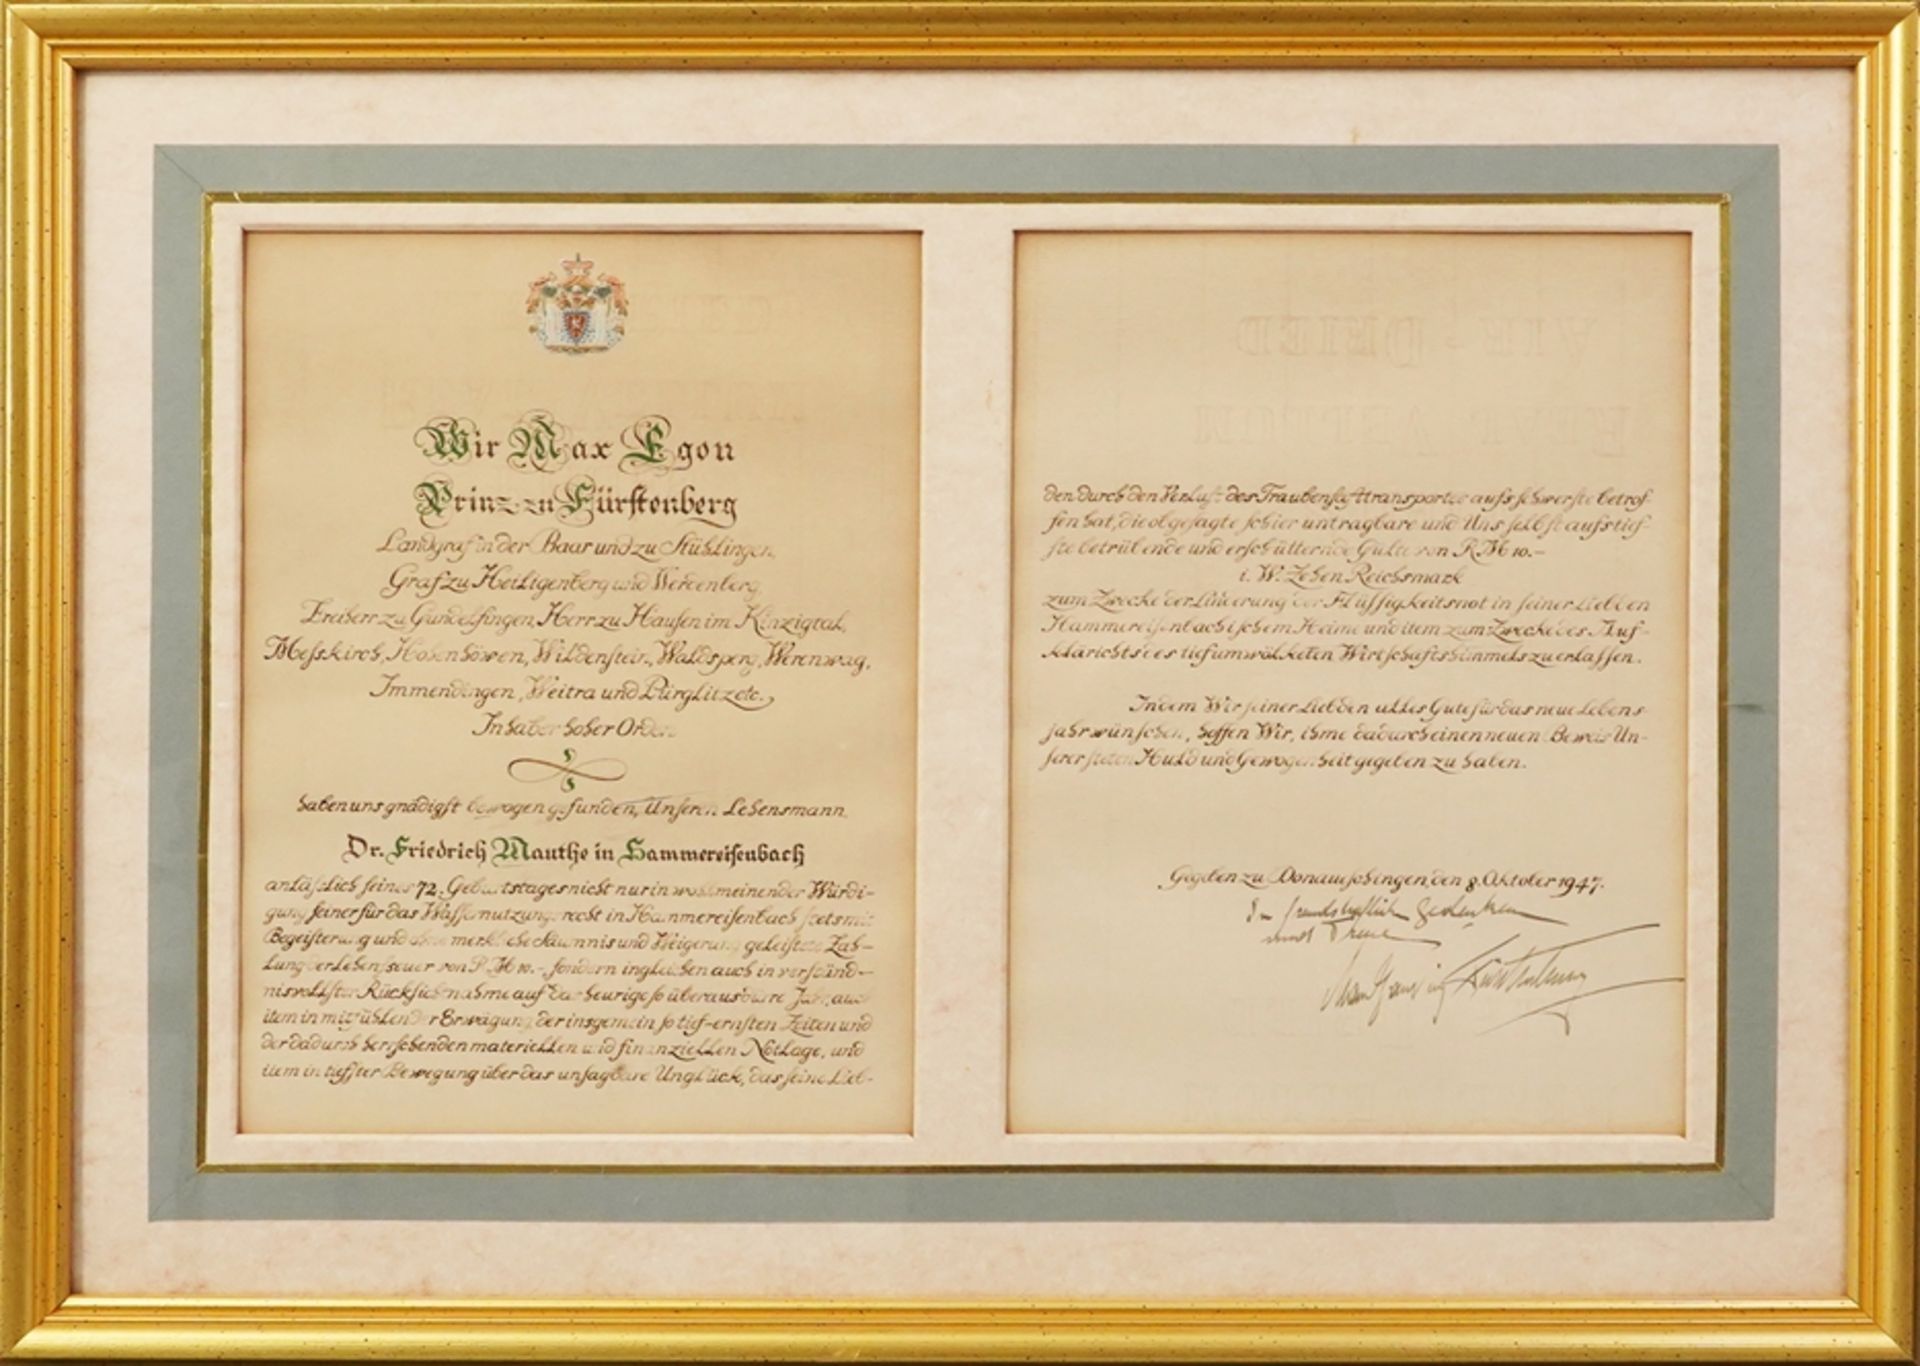 Wir Max Egon
Prinz zu Fürstenberg
Landgraf in der Baar und zu Stühlingen,
Graf zu Heiligenberg und Werdenberg,
Freiherr zu Gundelfingen, Herr zu Hausen im Kinzigtal,
Messkirch, Hohenhöwen, Wildenstein, Waldsperg, Werenwag,
Immendingen, Weitra und Pürglitz etc.,
Inhaber hoher Orden
haben uns gnädigst bewogen gefunden, Unseren Lehensmann
Dr. Friedrich Mauthe in Hammereisenbach
anläßlich seines 72. Geburtstages nicht nur in wohlmeinender Würdi-
gung seiner für das Wassernutzungsrecht in Hammereisenbach stets mit
Begeisterung und ohne merkliche Säumnis und Weigerung geleistete Zah-
lung der Lehenssteuer von RM 10.-, sondern ingleichen auch in verständ-
nisvollster Rücksichtnahme auf das heurige so überaus dürre Jahr, auch
item in mitfühlender Erwägung der insgemein so tief-ernsten Zeiten und
der dadurch herrschenden materiellen und finanziellen Notlage, und
item in tiefster Bewegung über das unsagbare Unglück, das seine Lieb-
den durch den Verlust des Traubensafttransportes aufs schwerste betrof-
fen hat, die obgesagte schier untragbare und Uns selbst aufs tief-
ste betrübende und erschütternde Gülte von RM 10.-
i. W. Zehen Reichsmark
zum Zwecke der Linderung der Flüssigkeitsnot in seiner Liebden
Hammereisenbachischem Heime und item zum Zwecke des Auf-
klarichts des tiefumwölketen Wirtschaftshimmels zu erlassen.
Indem Wir seiner Liebden alles Gute für das neue Lebens-
jahr wünschen, hoffen Wir, ihme dadurch einen neuen Beweis Un-
serer steten Huld und Gewogenheit gegeben zu haben.
Gegeben zu Donaueschingen, den 8. Oktober 1947.
In freundschaftlich Gedenken
und Treue